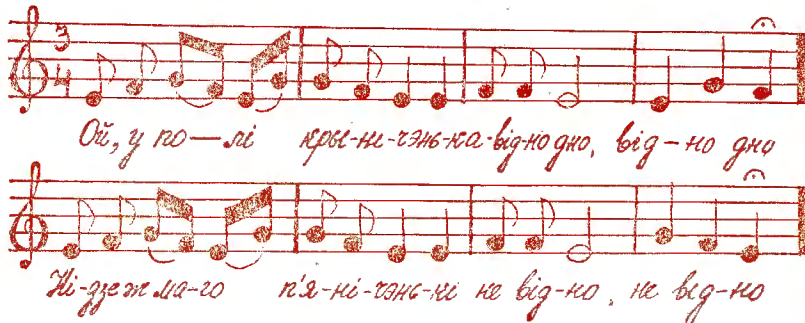 3
4
Ой, у по—лі кры-ні-чэнь-ка відно дно, від-но дно
Ні-дзе ж ма-го п'я-ні-чэнь-кі не від-но, не від-но